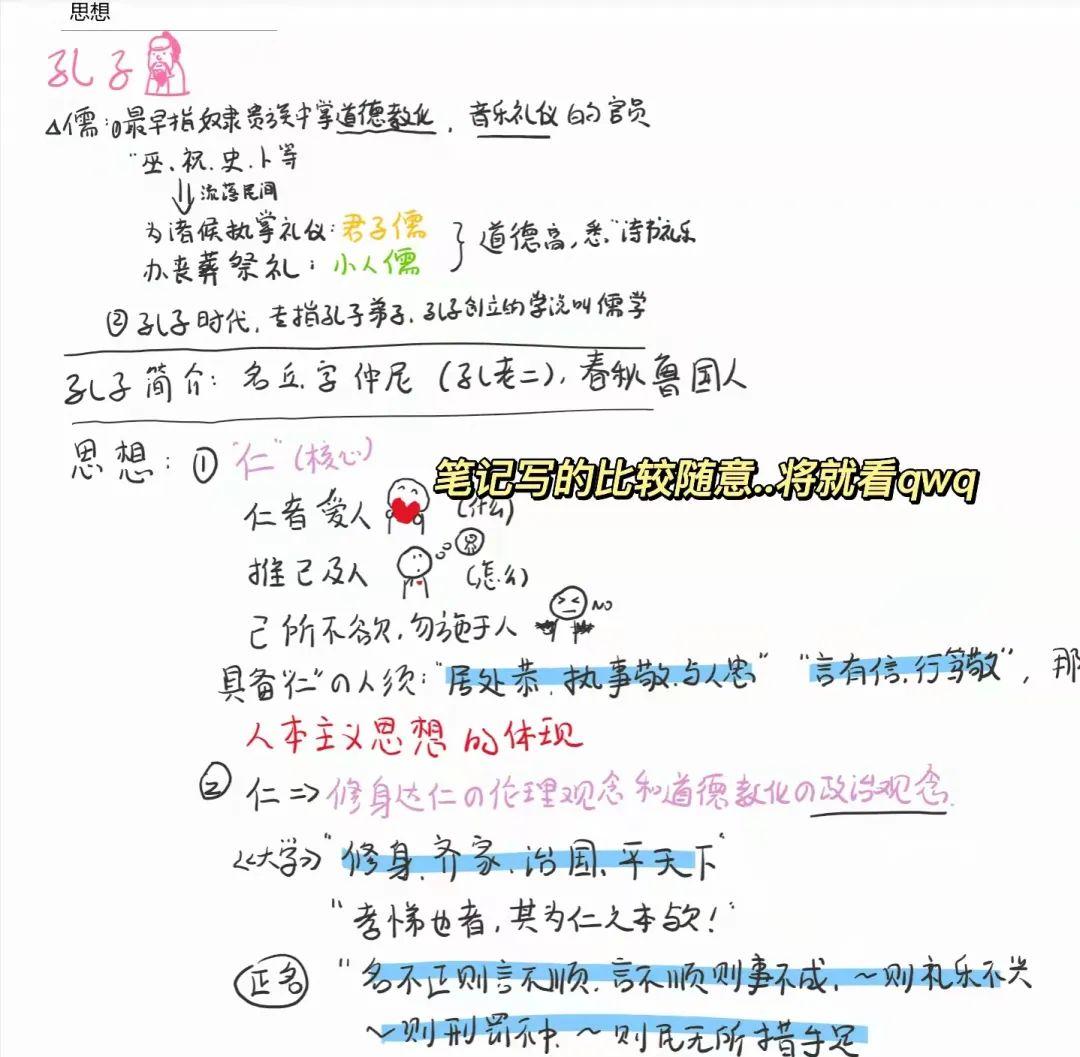 思想
孔子
△儒:①最早指奴隶贵族中掌道德教化,音乐礼仪的官员
"巫、祝、史、卜等
流落民间
为诸侯执掌礼仪:君子儒
办丧葬祭礼:小人儒
道德高,悉"诗书礼乐
②孔子时代,专指孔子弟子,孔子创立的学说叫儒学
孔子简介:名丘,字仲尼(孔老二),春秋鲁国人
思想:①"仁"(核心)
笔记写的比较随意..将就看qwq
仁者爱人 (什么)
推己及人 (怎么)
己所不欲,勿施于人 NO
具备"仁"の人须:"居处恭、执事敬、与人忠" "言有信,行笃敬",那
人本主义思想的体现
②仁=>修身达仁の伦理观念和道德教化の政治观念.
《大学》"修身、齐家、治国、平天下"
"孝悌也者,其为仁之本欤!"
正名 "名不正则言不顺,言不顺则事不成,~则礼乐不兴
~则刑罚不中,~则民无所措手足